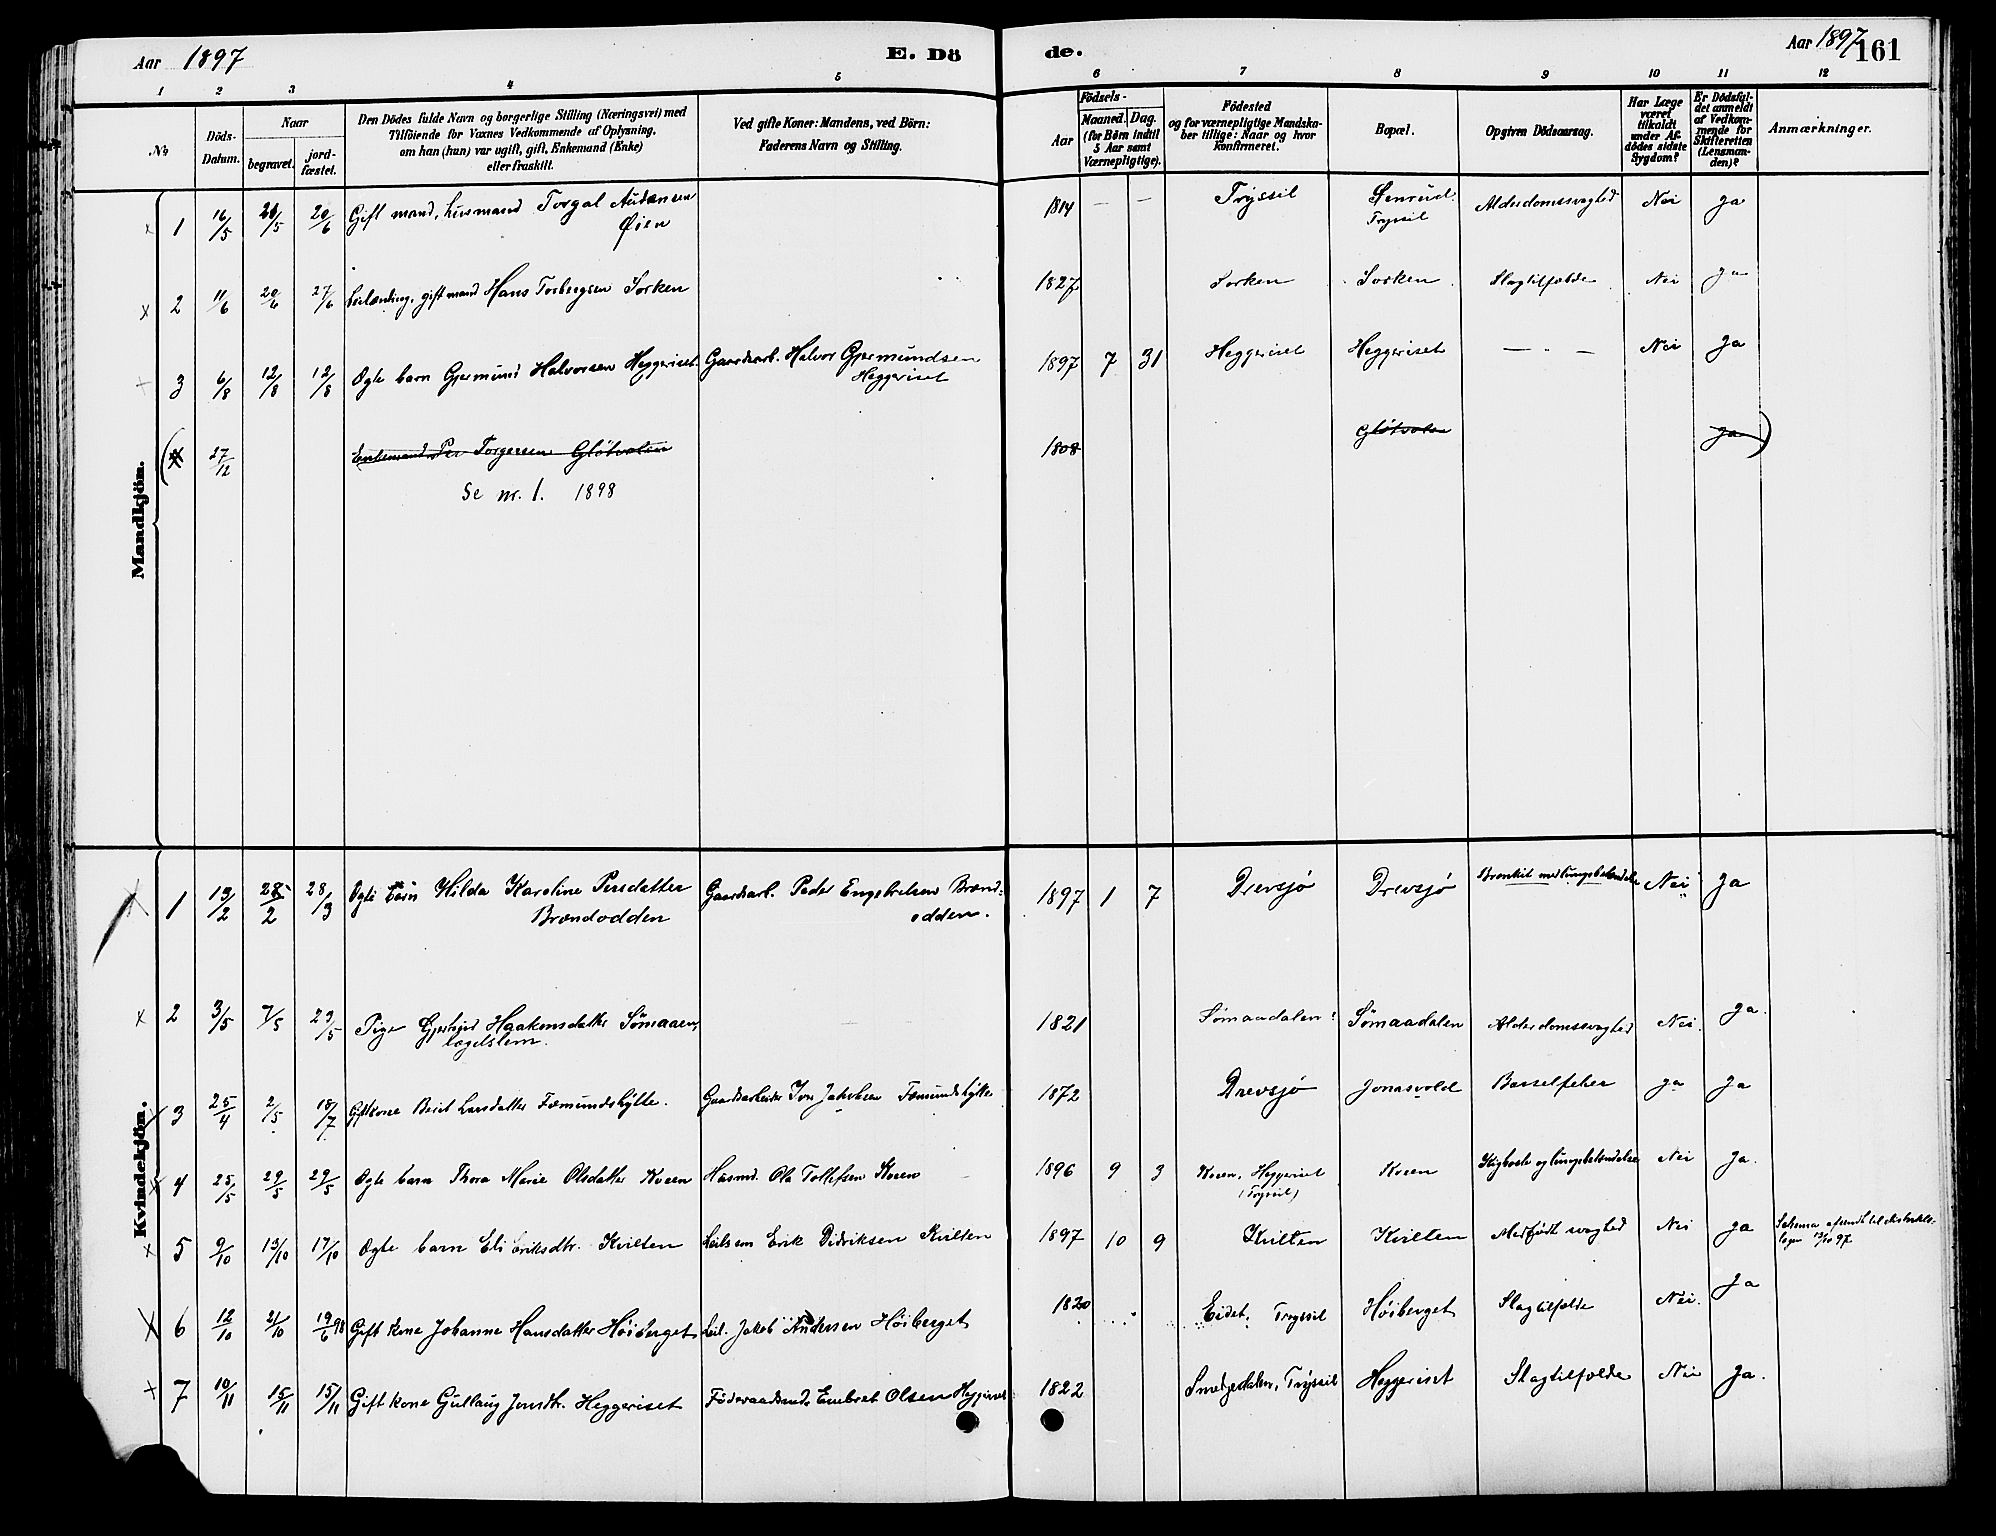 Aar 1897
E. Dö
de.
Aar 1897
161
1 2 3 4 5 6 7 8 9 10 11 12
No
Döds-Datum.
Naar
begravet.
jord-fæstet.
Den Dödes fulde Navn og borgerlige Stilling (Næringsvei) med
Tilföiende for Voxnes Vedkommende af Oplysning,
om han (hun) var ugift, gift, Enkemand (Enke)
eller fraskilt.
Ved gifte Koner: Mandens, ved Börn:
Faderens Navn og Stilling.
Födsels-
Aar
Maaned.
Dag.
(for Börn indtil
5 Aar samt
Værnepligtige).
Födested
og for værnepligtige Mandska-
ber tillige: Naar og hvor
konfirmeret.
Bopæl.
Opgiven Dödsaarsag.
Har Læge
været
tilkaldt
under Af-
dödes sidste
Sygdom?
Er Dödsfal-
det anmeldt
af Vedkom-
mende for
Skifteretten
(Lensman-
den)?
Anmærkninger.
Mandkjön.
1 16/5 20/6 Gift mand, husmand Torgal Audensen 1814 — — Tryssil Alderdomssvaghed Nei Ja
Øien Tryssil
2 11/6 20/6 27/6 Leilænding, gift mand Hans Torbergsen Sorken 1827 Sorken Sorken Slagtilfælde Nei Ja
3 6/8 12/8 12/8 Ægte barn Gjermund Halvorsen Heggeriset Gaardsarb. Halvor Gjermundsen 1897 7 31 Heggeriset Heggeriset — " — Nei Ja
Heggeriset
(4 27/12 Enkemand Per Torgersen Glötvolen 1808 Glötvolen Ja)
Se nr. 1. 1898
Kvindekjön.
1 13/2 28/2 28/3 Ægte barn Hilda Karoline Persdatter Gaardsarb. Peder Engebretsen Brænd- 1897 1 7 Drevsjø Drevsjø Bronkit med lungebetændelse Nei Ja
Brændodden odden.
2 3/5 7/5 23/5 Pige Haakensdatter Sömaaen, 1821 Sömaadalen Sömaadalen Alderdomssvaghed Nei. Ja.
lægdslem.
3 25/4 2/5 18/7 Gift kone Berit Larsdatter Fæmundshytte. Gaardsarbeider Iver Jakobsen Fæmundshytte 1872 Drevsjø Jonasvold Barselfeber Ja Ja
4 25/5 29/5 29/5 Ægte barn Thora Marie Olsdatter Kveen Husmd. Ola Tollefsen Kveen 1896 9 3 Kveen, Heggeriset Kveen Kighoste og lungebetændelse Nei Ja.
(Tryssil)
5 9/10 13/10 17/10 Ægte barn Eli Eriksdtr. Kvilten Leilæn Erik Didriksen Kvilten 1897 10 9 Kvilten Kvilten Medfødt svaghed Nei Ja Schema afsendt til distrikts-
lægen 13/10 97
6 12/10 21/10 19/6 98 Gift kone Johanne Hansdatter Höiberget Leil. Jakob Andersen Höiberget 1820 Eidet, Tryssil Höiberget Slagtilfælde Nei. Ja
7 10/11 15/11 15/11 Gift kone Gullaug Jonsdtr. Heggeriset Föderaadsmd. Embret Olsen Heggeriset 1822 Tryssil Heggeriset Slagtilfælde Nei Ja.